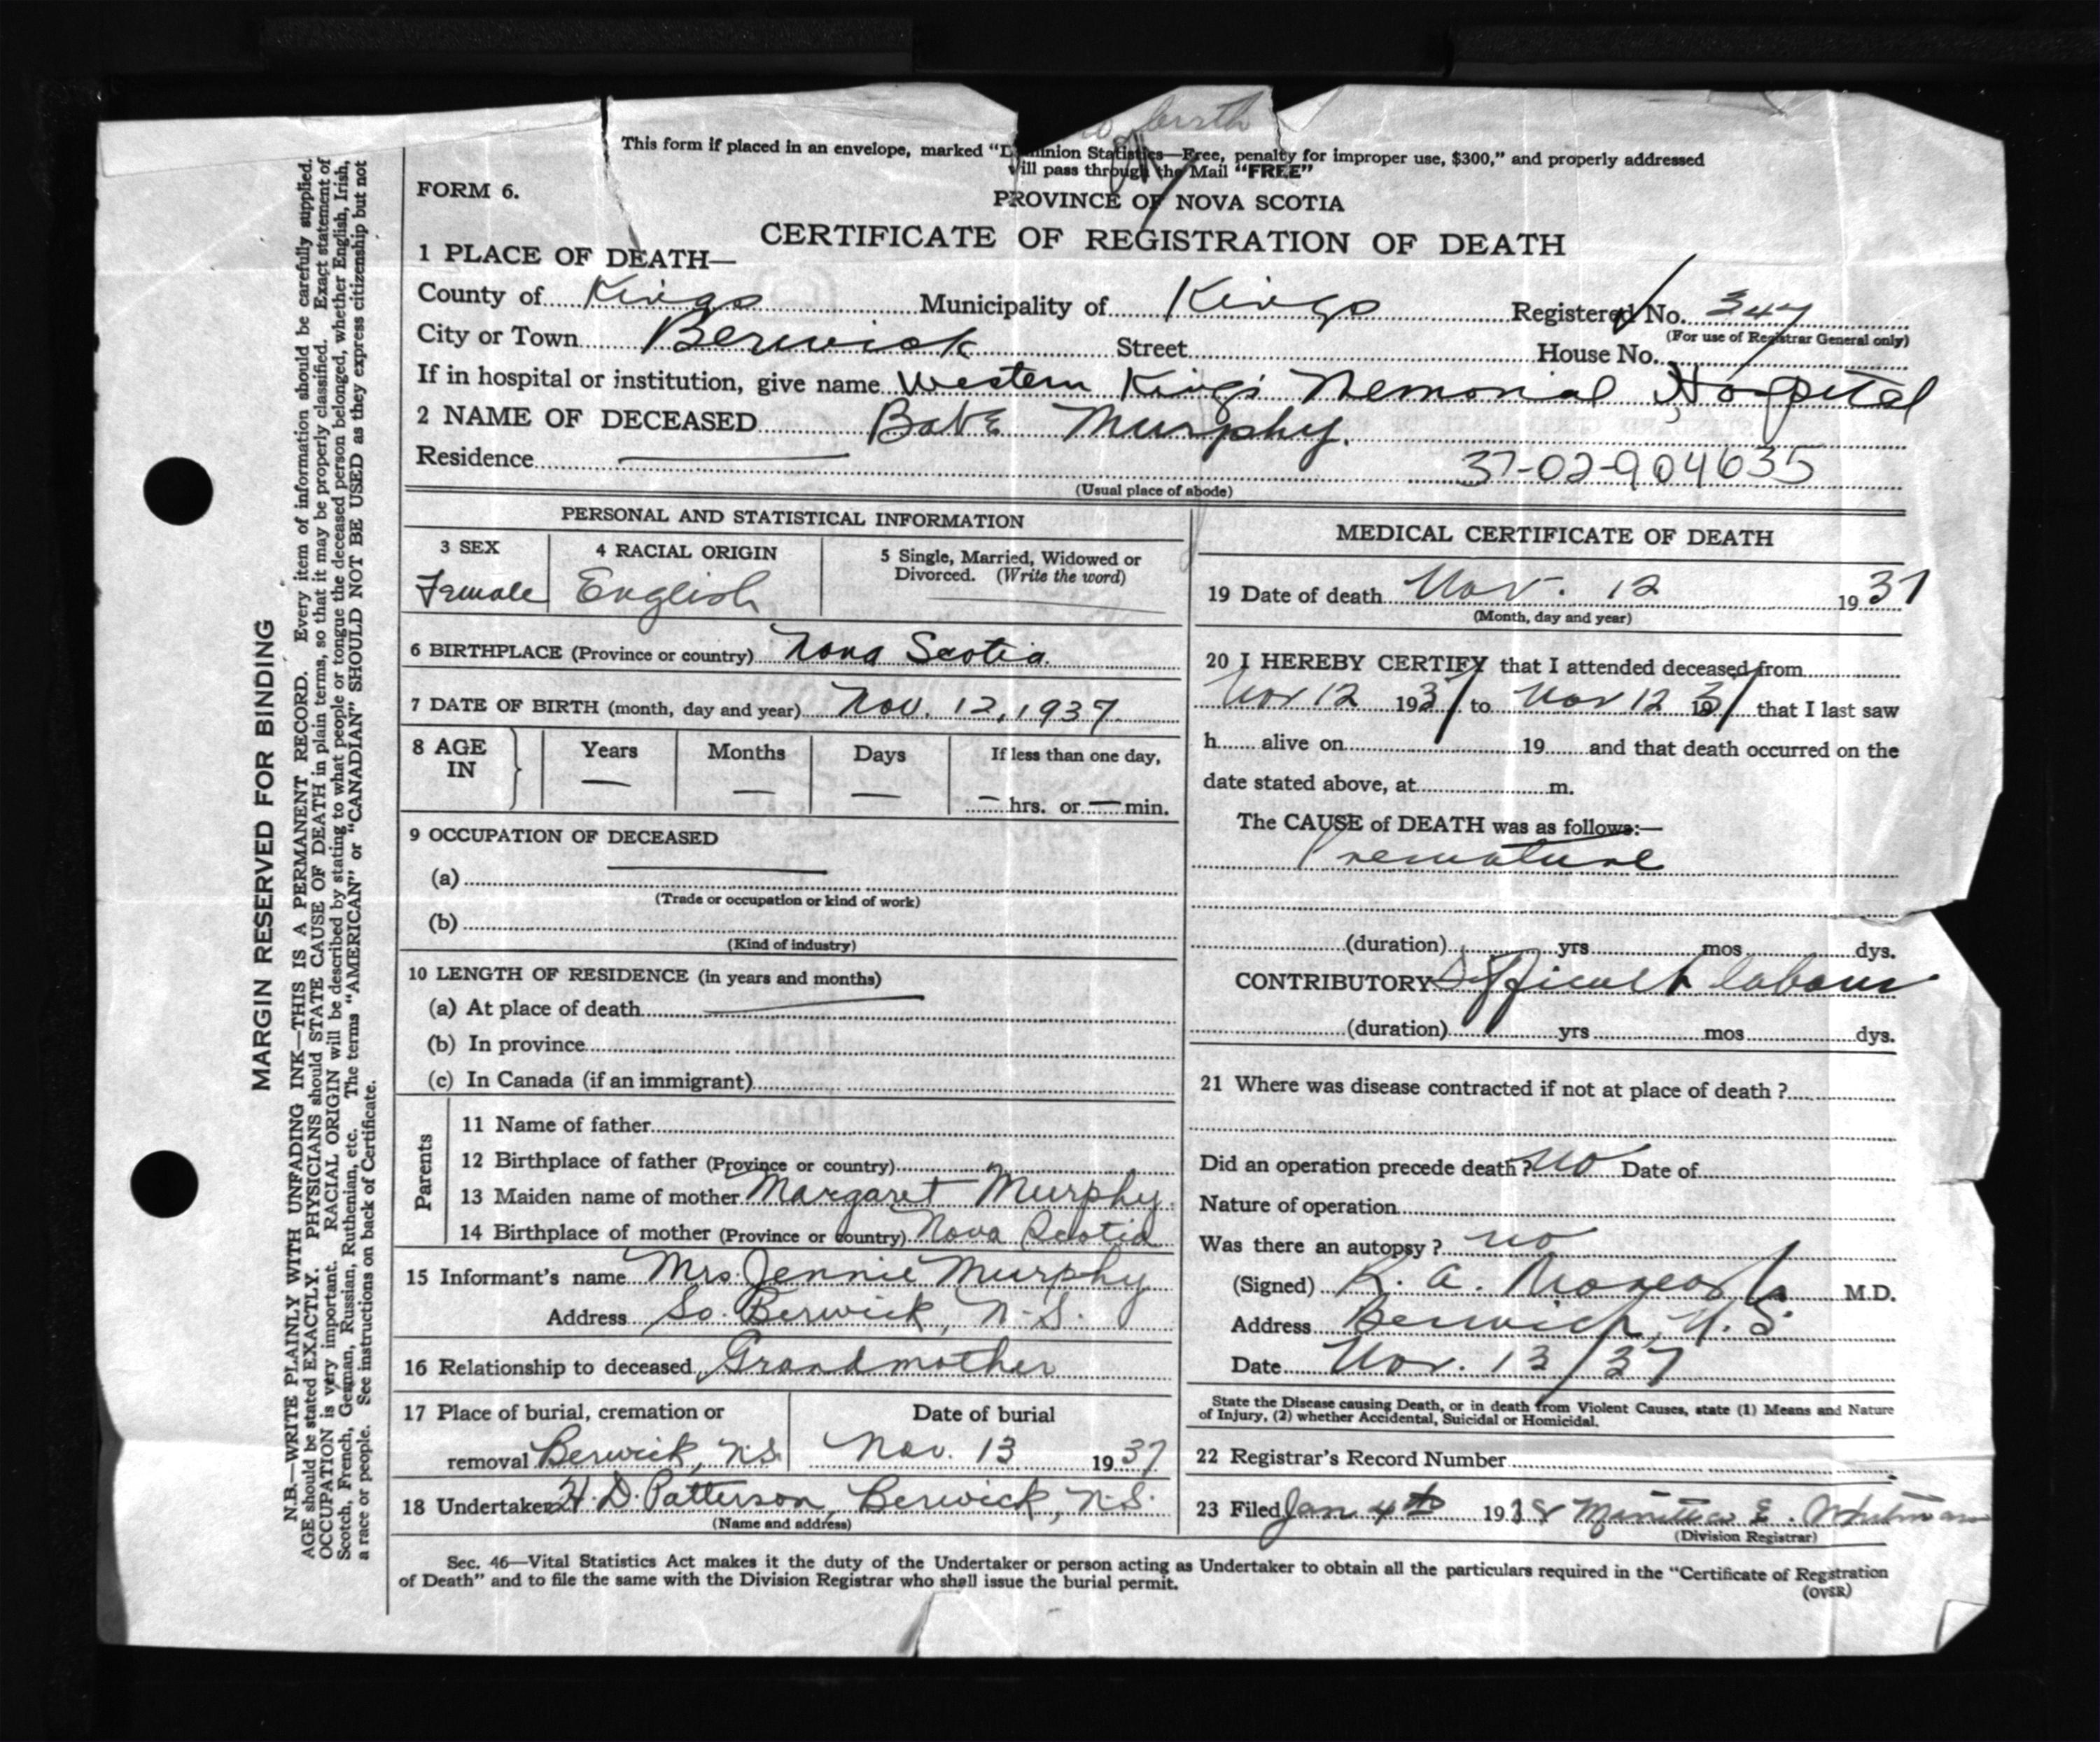 birth
This form if placed in an envelope, marked "Dominion Statistics—Free, penalty for improper use, $300," and properly addressed
will pass through the Mail "FREE"
FORM 6.
PROVINCE OF NOVA SCOTIA
CERTIFICATE OF REGISTRATION OF DEATH
1 PLACE OF DEATH—
County of Kings Municipality of Kings Registered No. 347
(For use of Registrar General only)
City or Town Berwick Street House No.
If in hospital or institution, give name Western Kings Memorial Hospital
2 NAME OF DECEASED Babe Murphy.
Residence 37-02-904635
(Usual place of abode)
PERSONAL AND STATISTICAL INFORMATION
3 SEX
Female
4 RACIAL ORIGIN
English
5 Single, Married, Widowed or
Divorced. (Write the word)
6 BIRTHPLACE (Province or country) Nova Scotia.
7 DATE OF BIRTH (month, day and year) Nov. 12, 1937.
8 AGE IN Years — Months — Days — If less than one day,
— hrs. or — min.
9 OCCUPATION OF DECEASED
(a)
(Trade or occupation or kind of work)
(b)
(Kind of industry)
10 LENGTH OF RESIDENCE (in years and months)
(a) At place of death
(b) In province
(c) In Canada (if an immigrant)
Parents
11 Name of father
12 Birthplace of father (Province or country)
13 Maiden name of mother Margaret Murphy.
14 Birthplace of mother (Province or country) Nova Scotia
15 Informant's name Mrs. Jennie Murphy
Address So. Berwick, N.S.
16 Relationship to deceased Grandmother
17 Place of burial, cremation or
removal Berwick, N.S.
Date of burial
Nov. 13 1937
18 Undertaker H. D. Patterson, Berwick, N.S.
(Name and address)
MEDICAL CERTIFICATE OF DEATH
19 Date of death Nov. 12 1937
(Month, day and year)
20 I HEREBY CERTIFY that I attended deceased from
Nov 12 1937 to Nov 12 1937 that I last saw
h alive on 19 and that death occurred on the
date stated above, at m.
The CAUSE of DEATH was as follows:—
Premature
(duration) yrs mos dys.
CONTRIBUTORY Difficult labour
(duration) yrs mos dys.
21 Where was disease contracted if not at place of death ?
Did an operation precede death ? no Date of
Nature of operation
Was there an autopsy ? no
(Signed) R. A. M.D.
Address Berwick, N.S.
Date Nov. 13/37
State the Disease causing Death, or in death from Violent Causes, state (1) Means and Nature
of Injury, (2) whether Accidental, Suicidal or Homicidal.
22 Registrar's Record Number
23 Filed Jan 4th 1938 E. Whitman
(Division Registrar)
Sec. 46—Vital Statistics Act makes it the duty of the Undertaker or person acting as Undertaker to obtain all the particulars required in the "Certificate of Registration
of Death" and to file the same with the Division Registrar who shall issue the burial permit.
(OVER)
MARGIN RESERVED FOR BINDING
N.B.—WRITE PLAINLY WITH UNFADING INK—THIS IS A PERMANENT RECORD. Every item of information should be carefully supplied.
AGE should be stated EXACTLY. PHYSICIANS should STATE CAUSE OF DEATH in plain terms, so that it may be properly classified. Exact statement of
OCCUPATION is very important. RACIAL ORIGIN will be described by stating to what people or tongue the deceased person belonged, whether English, Irish,
Scotch, French, German, Russian, Ruthenian, etc. The terms "AMERICAN" or "CANADIAN" SHOULD NOT BE USED as they express citizenship but not
a race or people. See instructions on back of Certificate.